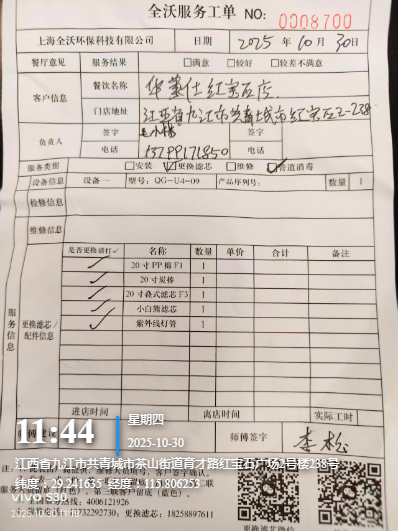 全沃服务工单 NO: 0008700
上海全沃环保科技有限公司 日期 2025 年 10 月 30日
餐厅意见 服务结果 □满意 □较好 □较差不满意
客户信息 餐饮名称 华莱仕红宝石店
门店地址 江西省九江市共青城市红宝石2-238
负责人 签字 签字
电话 电话
服务类别 □安装 ☑更换滤芯 □维修 ☑管道消毒
设备信息 设备一 型号: QG-U4-09 产品序列号: 数量 1
检修信息
维修信息
服务信息 更换滤芯/配件信息
是否更换请打✓ 名称 数量 单价 合计 备注
✓ 20寸PP棉F1 1
✓ 20寸炭棒 1
✓ 20寸叠式滤芯F3 1
✓ 小白熊滤芯 1
✓ 紫外线灯管 1
进店时间 离店时间 实际工时
师傅签字 李松
11:44 星期四
2025-10-30
江西省九江市共青城市茶山街道育才路红宝石广场2号楼238号
纬度: 29.241635 经度: 115.806253
vivo S30
2025
4006121926
更换滤芯: 18258897611